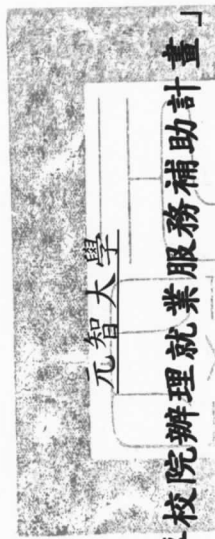 元智大學
校院辦理就業服務補助計畫」